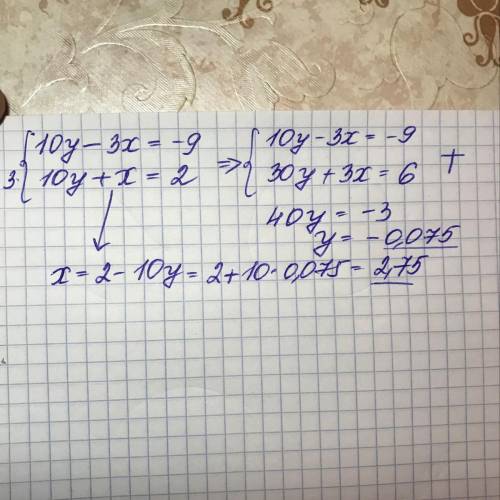 10y - 3x = -9
3· 10y + x = 2
⇒ 10y - 3x = -9
30y + 3x = 6 +
40y = -3
y = -0,075
x = 2 - 10y = 2 + 10 · 0,075 = 2,75